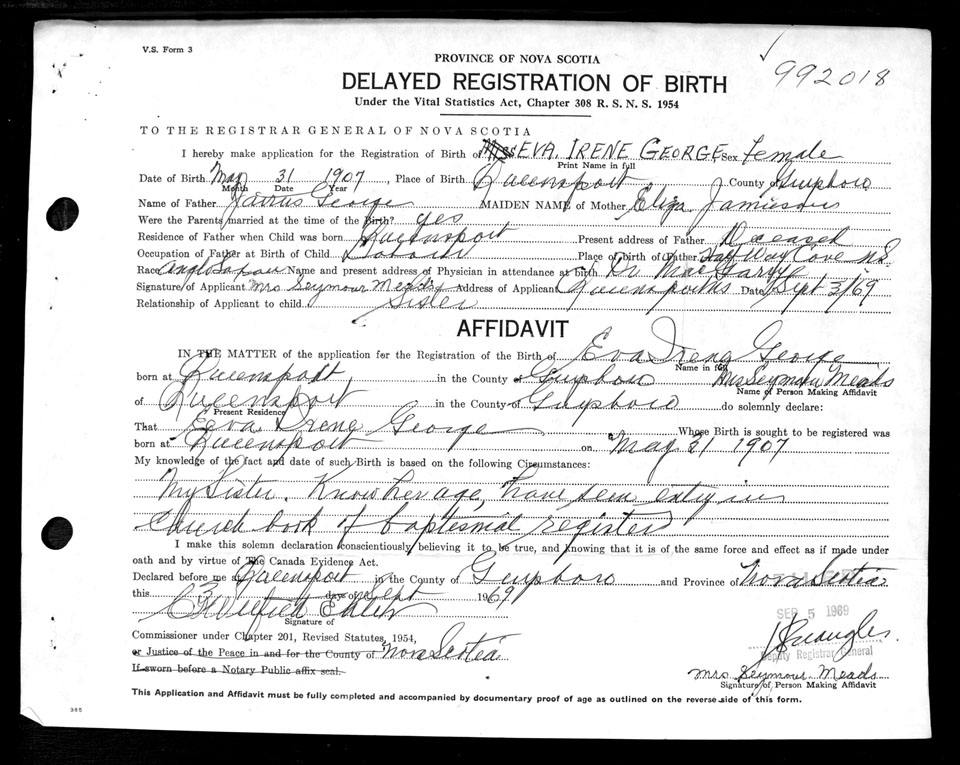 V.S. Form 3
PROVINCE OF NOVA SCOTIA
992018
DELAYED REGISTRATION OF BIRTH
Under the Vital Statistics Act, Chapter 308 R. S. N. S. 1954
TO THE REGISTRAR GENERAL OF NOVA SCOTIA
I hereby make application for the Registration of Birth of EVA IRENE GEORGE Sex Female
Print Name in full
Date of Birth May 31 1907, Place of Birth Queensport County of Guysboro
Month Date Year
Name of Father George MAIDEN NAME of Mother Eliza Jamieson
Were the Parents married at the time of the Birth? yes
Residence of Father when Child was born Queensport Present address of Father Deceased
Occupation of Father at Birth of Child Place of birth of Father Cove N.S.
Race Anglo Saxon Name and present address of Physician in attendance at birth Dr.
Signature of Applicant Mrs Seymour Meads Address of Applicant Queensport NS Date Sept 3/69
Relationship of Applicant to child Sister
AFFIDAVIT
IN THE MATTER of the application for the Registration of the Birth of Eva Irene George
Name in full
born at Queensport in the County of Guysboro Mrs Seymour Meads
Name of Person Making Affidavit
of Queensport in the County of Guysboro do solemnly declare:
Present Residence
That Eva Irene George Whose Birth is sought to be registered was
born at Queensport on May 31 1907
My knowledge of the fact and date of such Birth is based on the following Circumstances:
My Sister. Know her age, have seen entry in
Church book of baptesmial register
I make this solemn declaration conscientiously believing it to be true, and knowing that it is of the same force and effect as if made under
oath and by virtue of The Canada Evidence Act.
Declared before me at Queensport in the County of Guysboro and Province of Nova Scotia
this 3 day of Sept 1969
SEP 5 1969
Signature of
Commissioner under Chapter 201, Revised Statutes, 1954,
Deputy Registrar General
or Justice of the Peace in and for the County of Nova Scotia
If sworn before a Notary Public affix seal.
Mrs Seymour Meads
Signature of Person Making Affidavit
This Application and Affidavit must be fully completed and accompanied by documentary proof of age as outlined on the reverse side of this form.